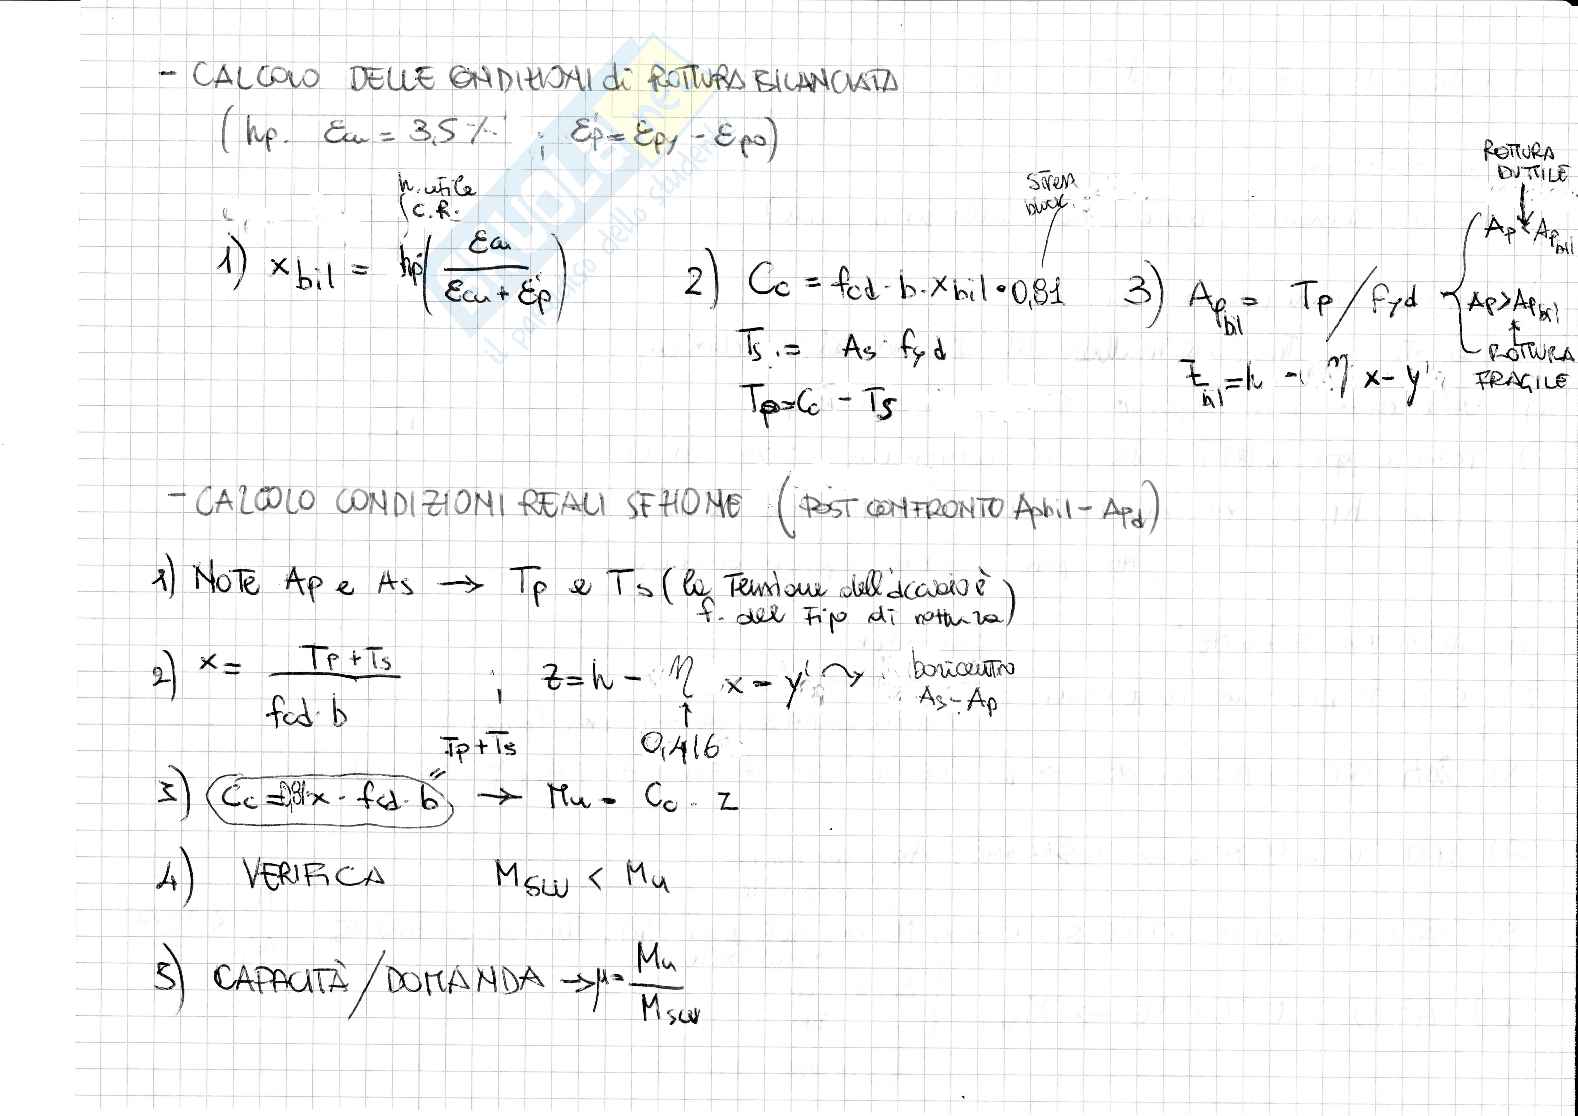 - CALCOLO DELLE CONDIZIONI di ROTTURA BILANCIATA
(hp. εcu = 3,5 ‰ ; εp' = εpy - εp0)
h. utile
c.a.
1) xbil = hp (εcu / (εcu + εp'))
stress
block
2) Cc = fcd · b · xbil · 0,81
Ts = As · fyd
Tp = Cc - Ts
3) Apbil = Tp / fyd
Zbil = h - η x - y'
ROTTURA
DUTTILE
Ap < Apbil
Ap > Apbil
ROTTURA
FRAGILE
- CALCOLO CONDIZIONI REALI SEZIONE (POST CONFRONTO Apbil - Apd)
1) NOTE Ap e As → Tp e Ts (la Tensione dell'acciaio è
f. del Tipo di rottura)
2) x = (Tp + Ts) / (fcd · b) ; z = h - η x - y' → baricentro
As - Ap
0,416
Tp + Ts
=
3) Cc = 0,81·x · fcd · b → Mu = Cc · z
4) VERIFICA MSLU < Mu
5) CAPACITÀ / DOMANDA → μ = Mu / MSLU